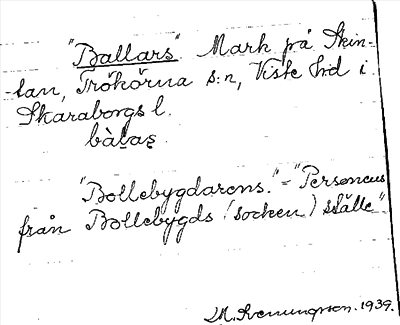 "Ballars" Mark på Skin-
-tan, Trökörna s:n, Viste hd i
Skaraborgs l.
bàlas
"Bollebygdarens." = "Personens
från Bollebygds (socken) ställe".
M. Svenungsson. 1939.